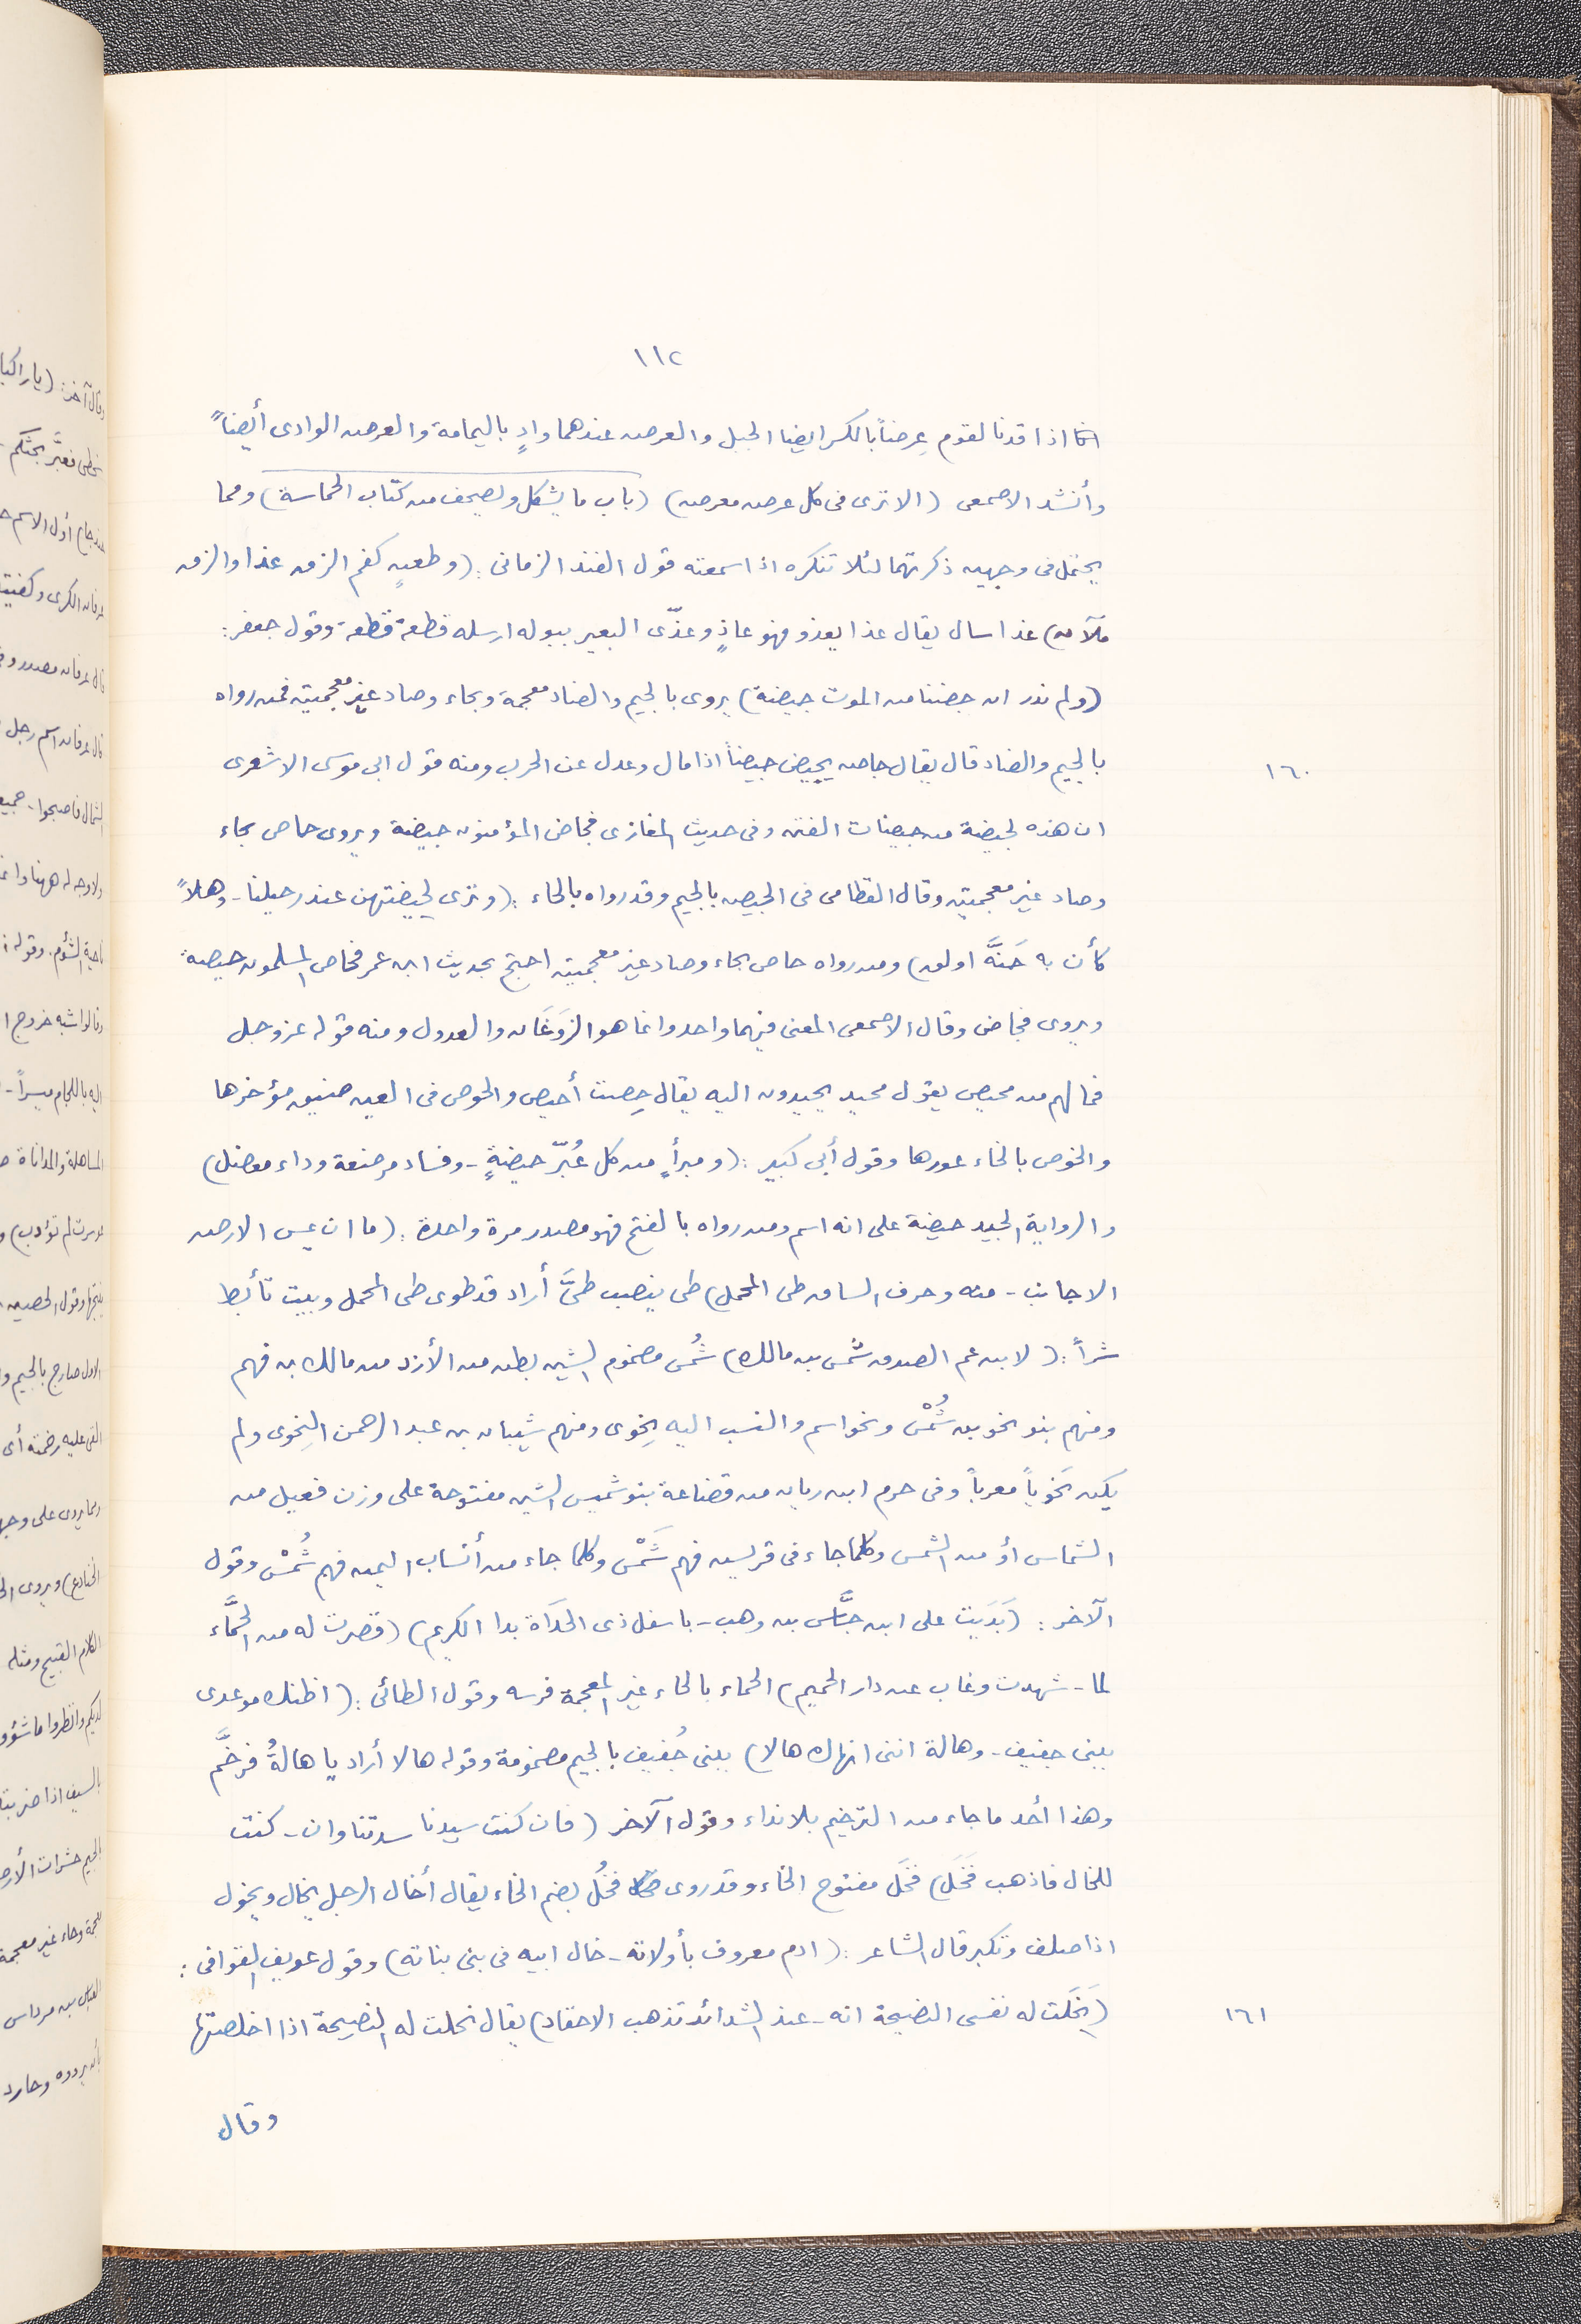 ١١٢
انا اذا قدنا لقوم عِرضاً بالكسر ايضا الجبل والعرض عندهما وادٍ باليمامة والعرض الوادى أيضاً
وأنشد الاصمعى (الا ترى فى كل عرض معرض) (باب ما يشكل ويصحف من كتاب الحماسة) ومما
يحتمل فى وجهين ذكرتهما لئلا تنكره اذا سمعته قول الفند الزمانى: (وطعنٍ كفم الزق غذا والزق
مَلآن) غذا سال يقال غذا يغذو فهو غاذٍ وغذّى البعير ببوله ارسله قطعة قطعة وقول جعفر:
(ولم ندر ان جضنا من الموت جيضة) يروى بالجيم والضاد معجمة وبحاء وصاد غير معجمتين فمن رواه
١٦٠
بالجيم والضاد قال يقال جاض يجيض جيضاً اذا مال وعدل عن الحرب ومنه قول ابى موسى الاشعرى
ان هذه لجيضة من جيضات الفتن وفى حديث المغازى فجاض المؤمنون جيضة ويروى حاص بحاء
وصاد غير معجمتين وقال القطامى فى الجيض بالجيم وقد رواه بالحاء: (وترى لجيضتهن عند رحيلنا - وهلاً
كأن به جَنَّة اولق) ومن رواه حاص بحاء وصاد غير معجمتين احتج بحديث ابن عمر فحاص المسلمون حيصة
ويروى فجاض وقال الاصمعى المعنى فيهما واحد وانما هو الرَوَغَان والعدول ومنه قوله عز وجل
فما لهم من محيص يقول محيد يحيدون اليه يقال حِصت أحيص والحوص فى العين ضيق مؤخرها
والخوص بالخاء غورها وقول أبى كبير: (ومبرأٍ من كل غُبّر حيضةٍ - وفساد مرضعة وداء معضل)
والرواية الجيد حيضة على انه اسم ومن رواه بالفتح فهو مصدر مرة واحدة: (ما ان يمس الارض
الا جانب - منه وحرف الساق طى المحمل) طى ينصب طىَّ أراد قد طوى طى المحمل وبيت تأبط
شراً: (لابن عم الصدق شمس بن مالك) شُمس مضموم الشين بطن من الأزد من مالك بن فهم
ومنهم بنو نحو بن شُمْس ونحو اسم والنسب اليه نحوى ومنهم شيبان بن عبد الرحمن النحوى ولم
يكن نَحوياً معرباً وفى جرم ابن ربان من قضاعة بنو شميس الشين مفتوحة على وزن فعيل من
الشماس أو من الشمس وكلما جاء فى قريش فهم شَمْس وكلما جاء من أنساب اليمن فهم شُمْس وقول
الآخر: (يَدَيت على ابن حسَّاس بن وهب - باسفل ذى الجذاة يدا الكريم) (قصرت له من الحمَّاء
لما - شهدت وغاب عن دار الحميم) الحماء بالحاء غير المعجمة فرسه وقول الطائى: (اظنك موعدى
ببنى جفيف - وهالة اننى انهاك هالا) ببنى جُفيف بالجيم مضمومة وقوله هالا أراد يا هالةُ فرخَّم
وهذا أحد ما جاء من الترخيم بلا نداء وقول الآخر (فان كنت سيدنا سدتنا وان - كنت
للخال فاذهب فَخَل) فخَل مفتوح الخاء وقد روى فخُل بضم الخاء يقال أخال الرجل يخال ويخول
اذا صلف وتكبر قال الشاعر: (ادم معروف بأولاته - خال ابيه فى بنى بناته) وقول عويف القوافى:
١٦١
(نَخَلت له نفسى النصيحة انه - عند الشدائد تذهب الاحقاد) يقال نخلت له النصيحة اذا اخلصتها
وقال